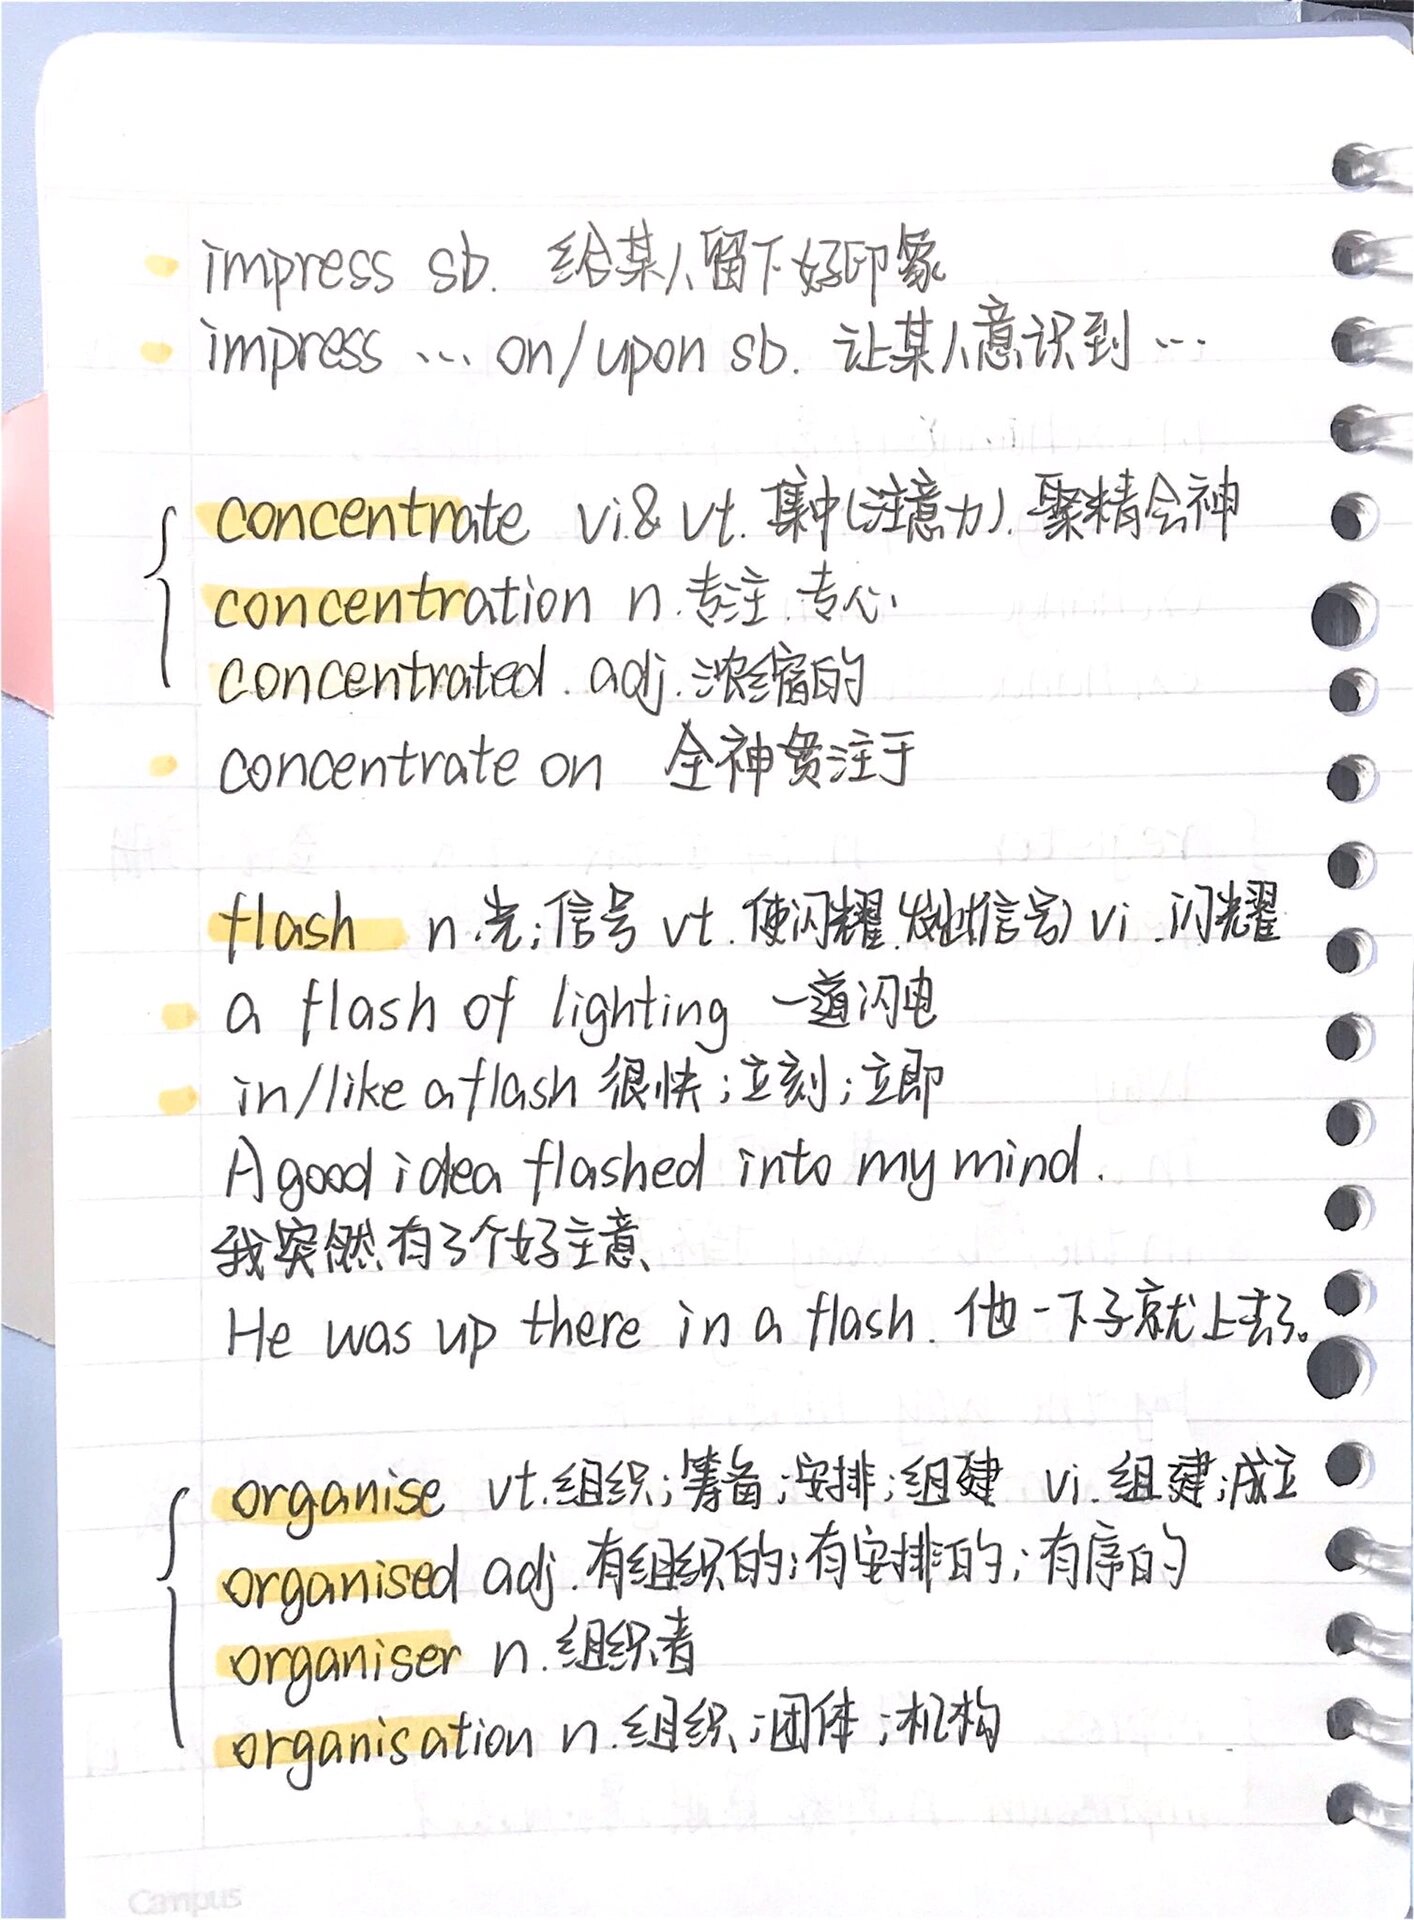 impress sb. 给某人留下好印象
impress ... on/upon sb. 让某人意识到 ...
concentrate vi.& vt. 集中(注意力). 聚精会神
concentration n. 专注. 专心.
concentrated. adj. 浓缩的
concentrate on 全神贯注于
flash n.光;信号 vt. 使闪耀.(发出信号) vi. 闪耀
a flash of lighting 一道闪电
in/like a flash 很快;立刻;立即
A good idea flashed into my mind.
我突然有了个好主意、
He was up there in a flash. 他一下子就上去了。
organise vt.组织;筹备;安排;组建 vi. 组建;成立
organised adj. 有组织的;有安排的;有序的
organiser n. 组织者
organisation n. 组织;团体;机构
Campus